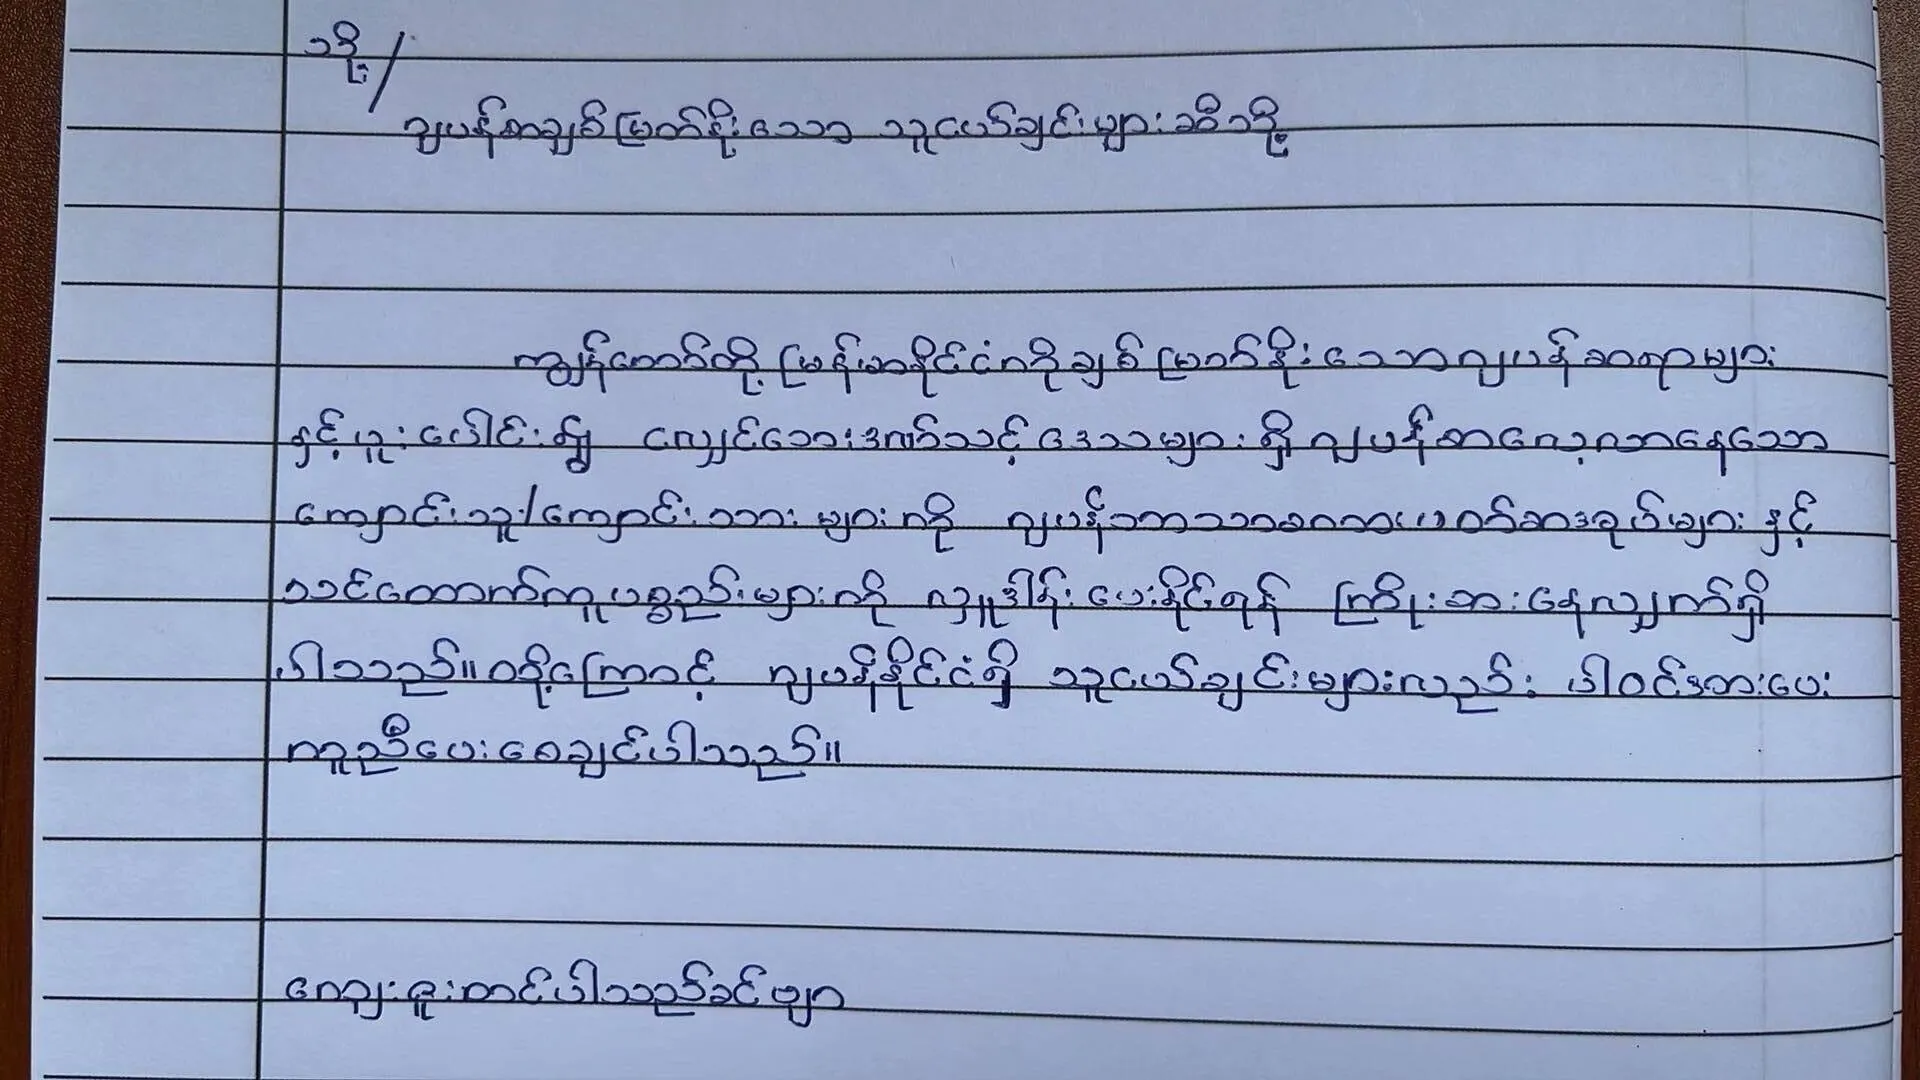 သို့/
ဂျပန်စာချစ်မြတ်နိုးသော သူငယ်ချင်းများဆီသို့
ကျွန်တော်တို့ မြန်မာနိုင်ငံကိုချစ်မြတ်နိုးသောဂျပန်ဆရာများ
နှင့်ပူးပေါင်း၍ လျှင်ဘေးဒဏ်သင့်ဒေသများရှိ ဂျပန်စာလေ့လာနေသော
ကျောင်းသူ/ကျောင်းသားများကို ဂျပန်ဘာသာစကားဖတ်စာအုပ်များနှင့်
သင်ထောက်ကူပစ္စည်းများကို လှူဒါန်းပေးနိုင်ရန် ကြိုးစားနေလျှက်ရှိ
ပါသည်။ ထို့ကြောင့် ဂျပန်နိုင်ငံရှိ သူငယ်ချင်းများလည်း ပါဝင်အားပေး
ကူညီပေးစေချင်ပါသည်။
ကျေးဇူးတင်ပါသည်ခင်ဗျာ